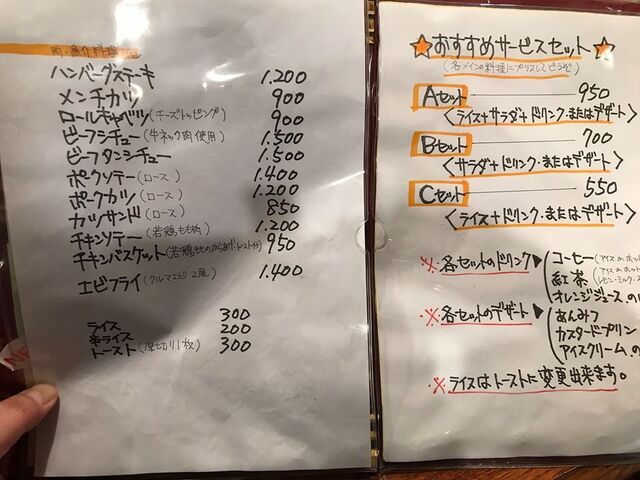 肉・魚介料理
ハンバーグステーキ 1.200
メンチカツ 900
ロールキャベツ(チーズトッピング) 900
ビーフシチュー(牛ネック肉使用) 1.500
ビーフタンシチュー 1.500
ポークソテー(ロース) 1.400
ポークカツ(ロース) 1.200
カツサンド(ロース) 850
チキンソテー(若鶏もも肉) 1.200
チキンバスケット(若鶏もものからあげ・トースト付) 950
エビフライ(クルマエビ2尾) 1.400
ライス 300
半ライス 200
トースト(厚切り1枚) 300
☆おすすめサービスセット☆
(各メインの料理にプラスしてどうぞ)
Aセット 950
<ライス+サラダ+ドリンク・またはデザート>
Bセット 700
<サラダ+ドリンク・またはデザート>
Cセット 550
<ライス+ドリンク・またはデザート>
※各セットのドリンク▶
コーヒー(アイス or ホット
紅茶(アイス or ホット
レモン・ミルク・ス
オレンジジュース の
※各セットのデザート▶
あんみつ
カスタードプリン
アイスクリーム の
※ライスはトーストに変更出来ます。